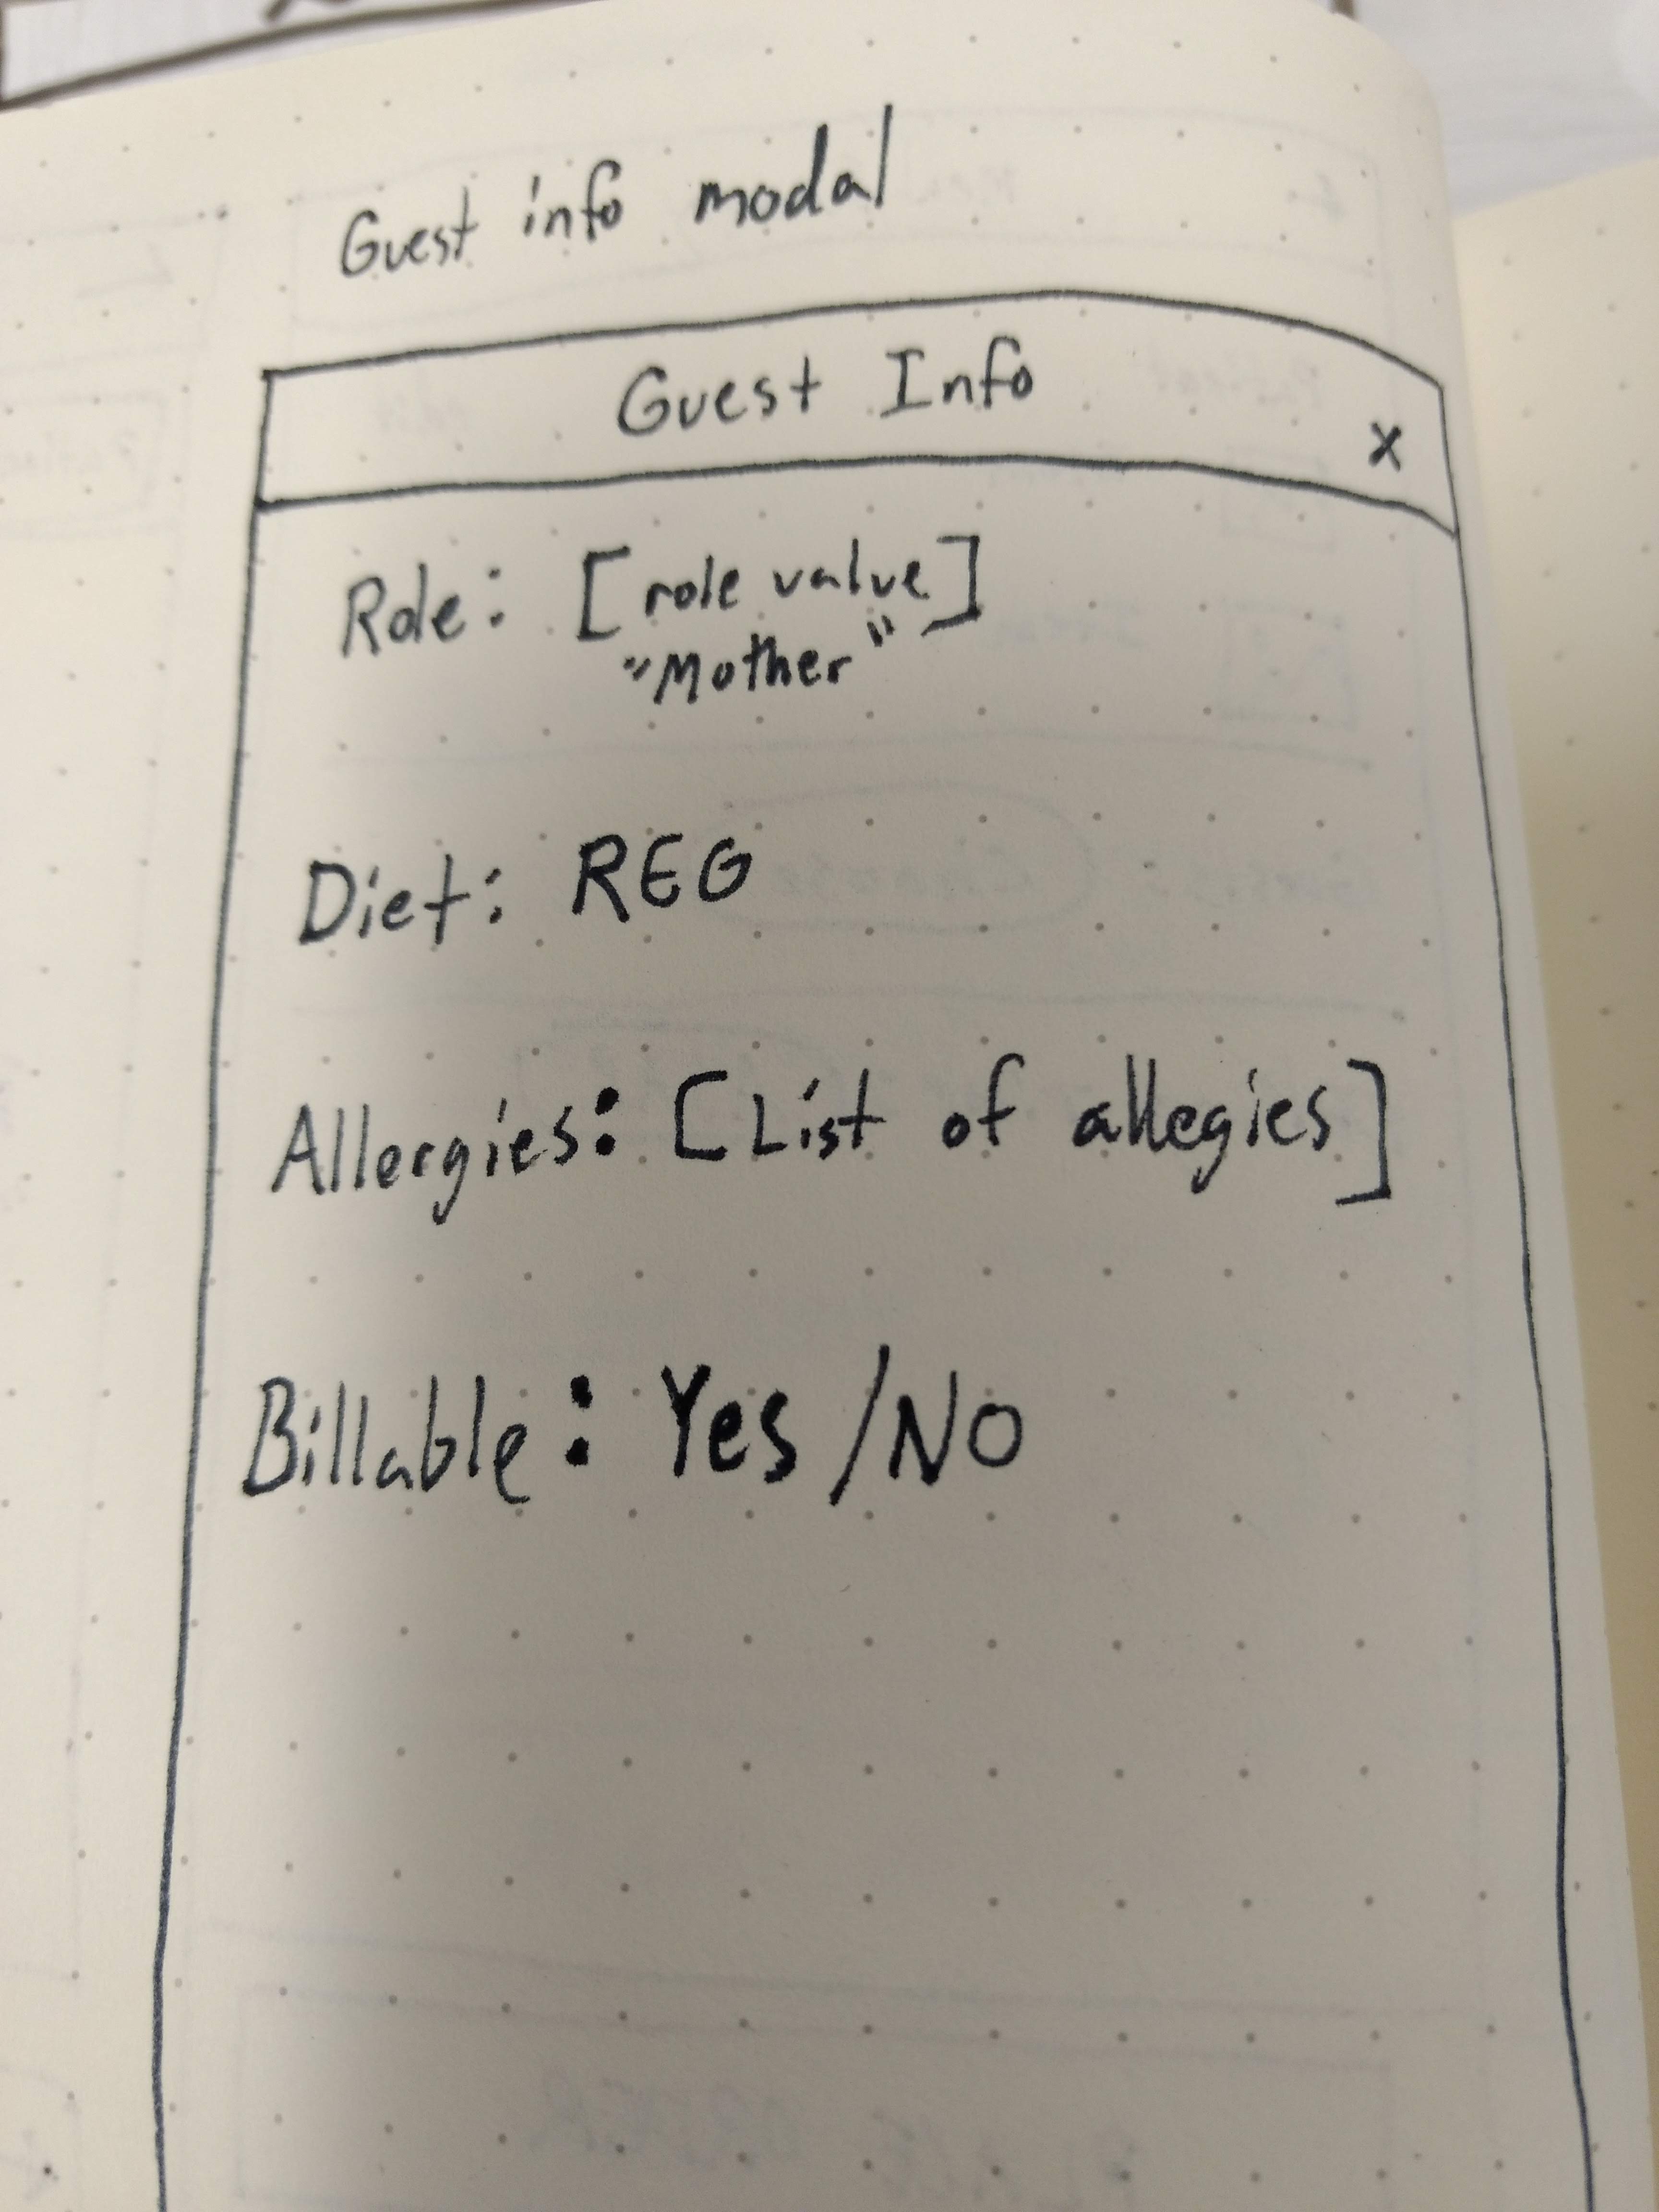 Guest info modal
Guest Info
x
Role: [role value]
"Mother"
Diet: REG
Allergies: [List of allegies]
Billable: Yes/No